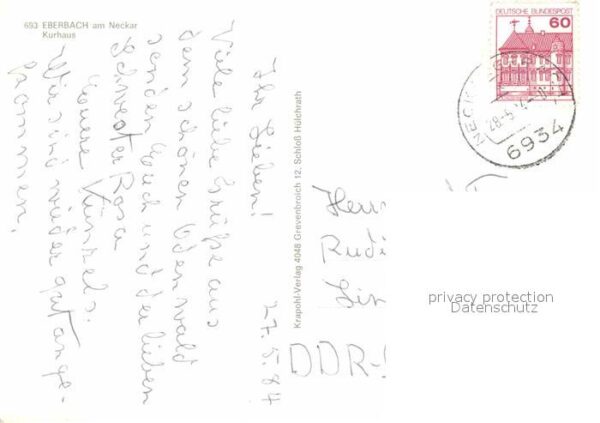 693 EBERBACH am Neckar
Kurhaus
27.5.84
Ihr Lieben!
Viele liebe Grüße aus
dem schönen Odenwald
senden Euch und der lieben
Schwester Rosa
Eure Künkels.
Wir sind wieder gut ange-
kommen.
Krapohl-Verlag 4048 Grevenbroich 12. Schloß Hülchrath
DEUTSCHE BUNDESPOST
60
NECK
28.5.
6934
Rudi
DDR-
privacy protection
Datenschutz